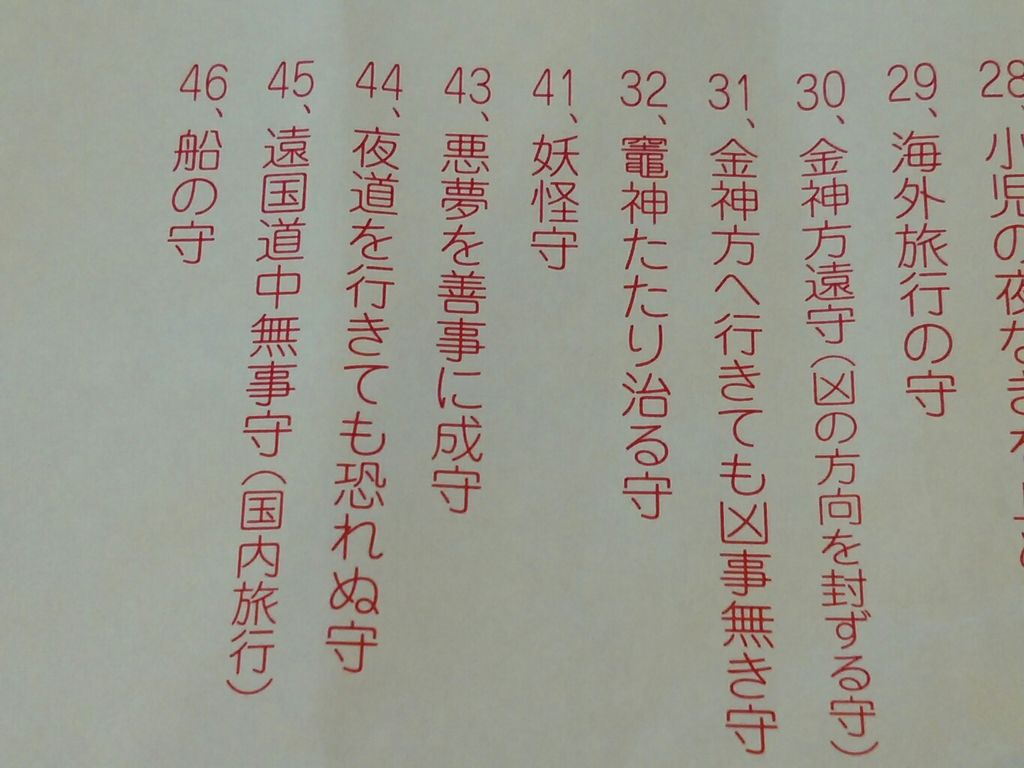 28、小児の夜なき
29、海外旅行の守
30、金神方遠守（凶の方向を封ずる守）
31、金神方へ行きても凶事無き守
32、竈神たたり治る守
41、妖怪守
43、悪夢を善事に成守
44、夜道を行きても恐れぬ守
45、遠国道中無事守（国内旅行）
46、船の守